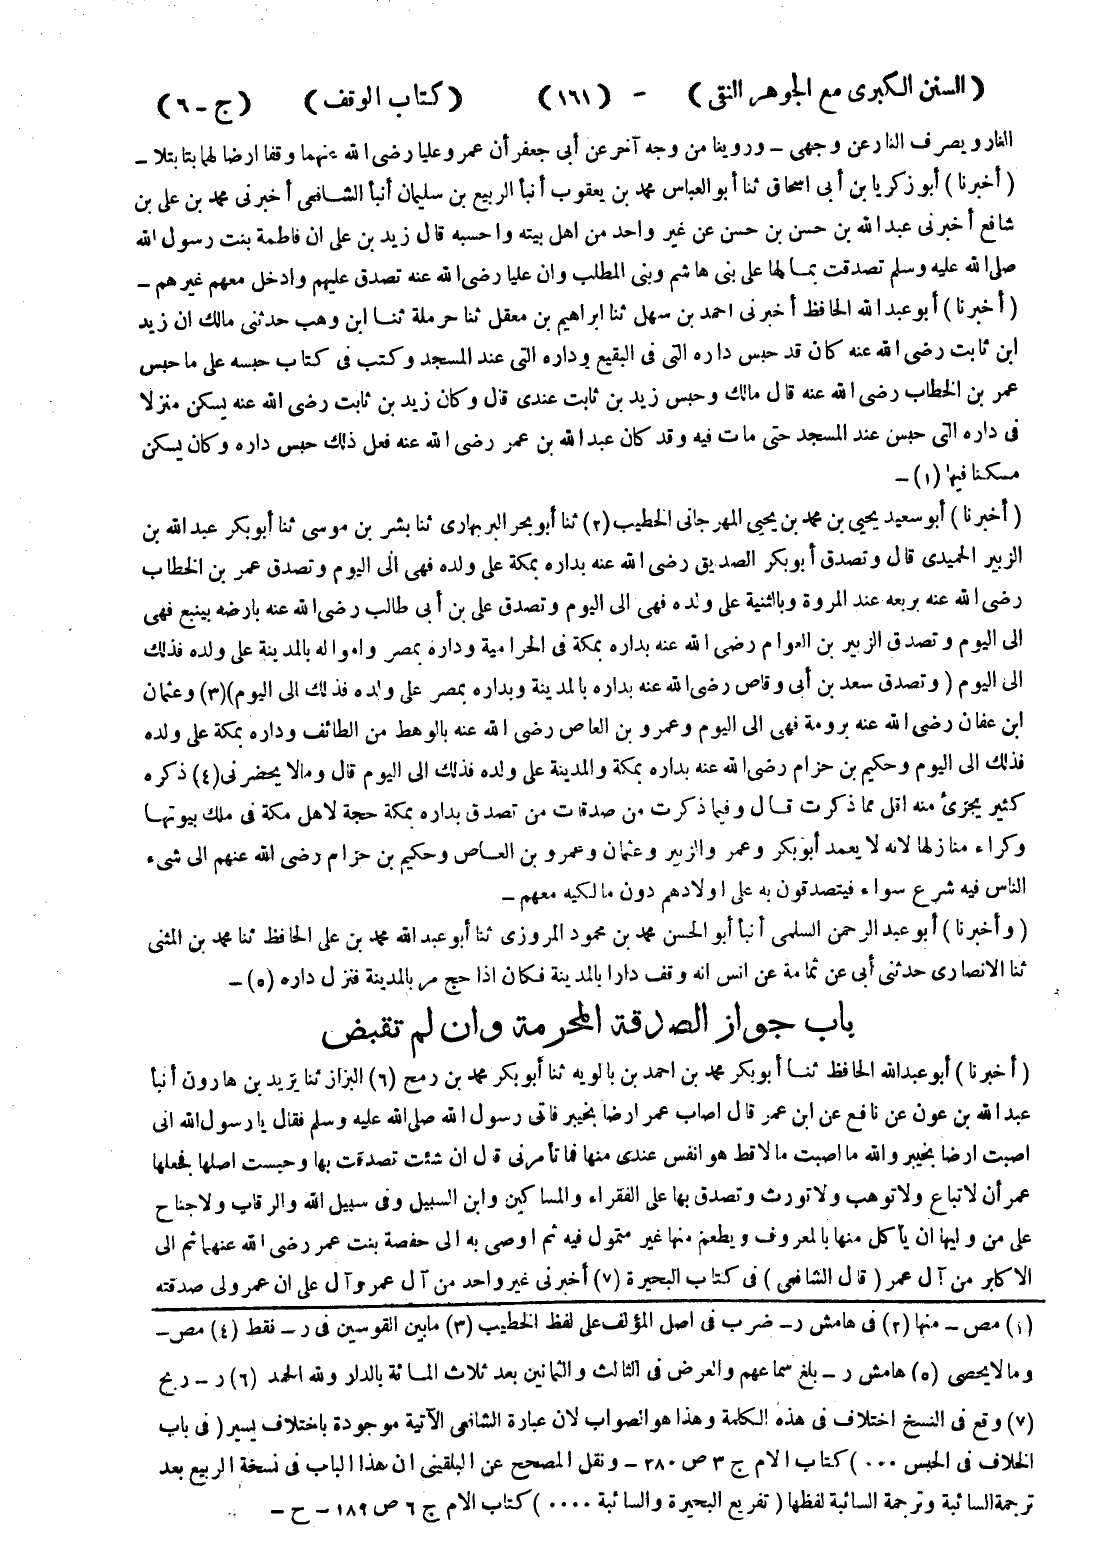 (السنن الكبرى مع الجوهر النقى) - (١٦١) (كتاب الوقف) (ج - ٦)
النار ويصرف النار عن وجهى - وروينا من وجه آخر عن أبى جعفر أن عمر وعليا رضى الله عنهما وقفا ارضا لهما بتا بتلا -
(أخبرنا) أبو زكريا بن أبى اسحاق ثنا أبو العباس محمد بن يعقوب أنبأ الربيع بن سليمان أنبأ الشافعى أخبرنى محمد بن على بن
شافع أخبرنى عبد الله بن حسن بن حسن عن غير واحد من اهل بيته واحسبه قال زيد بن على ان فاطمة بنت رسول الله
صلى الله عليه وسلم تصدقت بمالها على بنى هاشم وبنى المطلب وان عليا رضى الله عنه تصدق عليهم وادخل معهم غيرهم -
(أخبرنا) أبو عبد الله الحافظ أخبرنى احمد بن سهل ثنا ابراهيم بن معقل ثنا حرملة ثنا ابن وهب حدثنى مالك ان زيد
ابن ثابت رضى الله عنه كان قد حبس داره التى فى البقيع وداره التى عند المسجد وكتب فى كتاب حبسه على ما حبس
عمر بن الخطاب رضى الله عنه قال مالك وحبس زيد بن ثابت عندى قال وكان زيد بن ثابت رضى الله عنه يسكن منزلا
فى داره التى حبس عند المسجد حتى مات فيه وقد كان عبد الله بن عمر رضى الله عنه فعل ذلك حبس داره وكان يسكن
مسكنا فيها (١) -
(أخبرنا) أبو سعيد يحيى بن محمد بن يحيى المهرجانى الخطيب (٢) ثنا أبو بحر البربهارى ثنا بشر بن موسى ثنا أبو بكر عبد الله بن
الزبير الحميدى قال وتصدق أبو بكر الصديق رضى الله عنه بداره بمكة على ولده فهى الى اليوم وتصدق عمر بن الخطاب
رضى الله عنه بربعه عند المروة وبالثنية على ولده فهى الى اليوم وتصدق على بن أبى طالب رضى الله عنه بارضه بينبع فهى
الى اليوم وتصدق الزبير بن العوام رضى الله عنه بداره بمكة فى الحرامية وداره بمصر وامواله بالمدينة على ولده فذلك
الى اليوم (وتصدق سعد بن أبى وقاص رضى الله عنه بداره بالمدينة وبداره بمصر على ولده فذلك الى اليوم)(٣) وعثمان
ابن عفان رضى الله عنه برومة فهى الى اليوم وعمرو بن العاص رضى الله عنه بالوهط من الطائف وداره بمكة على ولده
فذلك الى اليوم وحكيم بن حزام رضى الله عنه بداره بمكة والمدينة على ولده فذلك الى اليوم قال ومالا يحضرنى (٤) ذكره
كثير يجزئ منه اقل مما ذكرت قال وفيما ذكرت من صدقات من تصدق بداره بمكة حجة لاهل مكة فى ملك بيوتها
وكراء منازلها لانه لا يعمد أبو بكر وعمر والزبير وعثمان وعمرو بن العاص وحكيم بن حزام رضى الله عنهم الى شىء
الناس فيه شرع سواء فيتصدقون به على اولادهم دون مالكيه معهم -
(وأخبرنا) أبو عبد الرحمن السلمى أنبأ أبو الحسن محمد بن محمود المروزى ثنا أبو عبد الله محمد بن على الحافظ ثنا محمد بن المثنى
ثنا الانصارى حدثنى أبى عن ثمامة عن انس انه وقف دارا بالمدينة فكان اذا حج مر بالمدينة فنزل داره (٥) -
باب جواز الصدقة المحرمة وان لم تقبض
(أخبرنا) أبو عبد الله الحافظ ثنا أبو بكر محمد بن احمد بن بالويه ثنا أبو بكر محمد بن رمح (٦) البزاز ثنا يزيد بن هارون أنبأ
عبد الله بن عون عن نافع عن ابن عمر قال اصاب عمر ارضا بخيبر فاتى رسول الله صلى الله عليه وسلم فقال يا رسول الله انى
اصبت ارضا بخيبر والله ما اصبت مالا قط هو انفس عندى منها فما تأمرنى قال ان شئت تصدقت بها وحبست اصلها فجعلها
عمر أن لا تباع ولا توهب ولا تورث وتصدق بها على الفقراء والمساكين وابن السبيل وفى سبيل الله والرقاب ولا جناح
على من وليها ان يأكل منها بالمعروف ويطعم منها غير متمول فيه ثم اوصى به الى حفصة بنت عمر رضى الله عنهما ثم الى
الاكابر من آل عمر (قال الشافعى) فى كتاب البحيرة (٧) أخبرنى غير واحد من آل عمر وآل على ان عمر ولى صدقته
(١) مص - منها (٢) فى هامش ر - ضرب فى اصل المؤلف على لفظ الخطيب (٣) مابين القوسين فى ر - فقط (٤) مص -
ومالا يحصى (٥) هامش ر - بلغ سماعهم والعرض فى الثالث والثمانين بعد ثلاث المائة بالدار ولله الحمد (٦) ر - ربح
(٧) وقع فى النسخ اختلاف فى هذه الكلمة وهذا هو الصواب لان عبارة الشافعى الآتية موجودة باختلاف يسير (فى باب
الخلاف فى الحبس ...) كتاب الام ج ٣ ص ٢٨٠ - ونقل المصحح عن البلقينى ان هذا الباب فى نسخة الربيع بعد
ترجمة السائبة وترجمة السائبة لفظها (تفريع البحيرة والسائبة ....) كتاب الام ج ٦ ص ١٨٩ - ح -